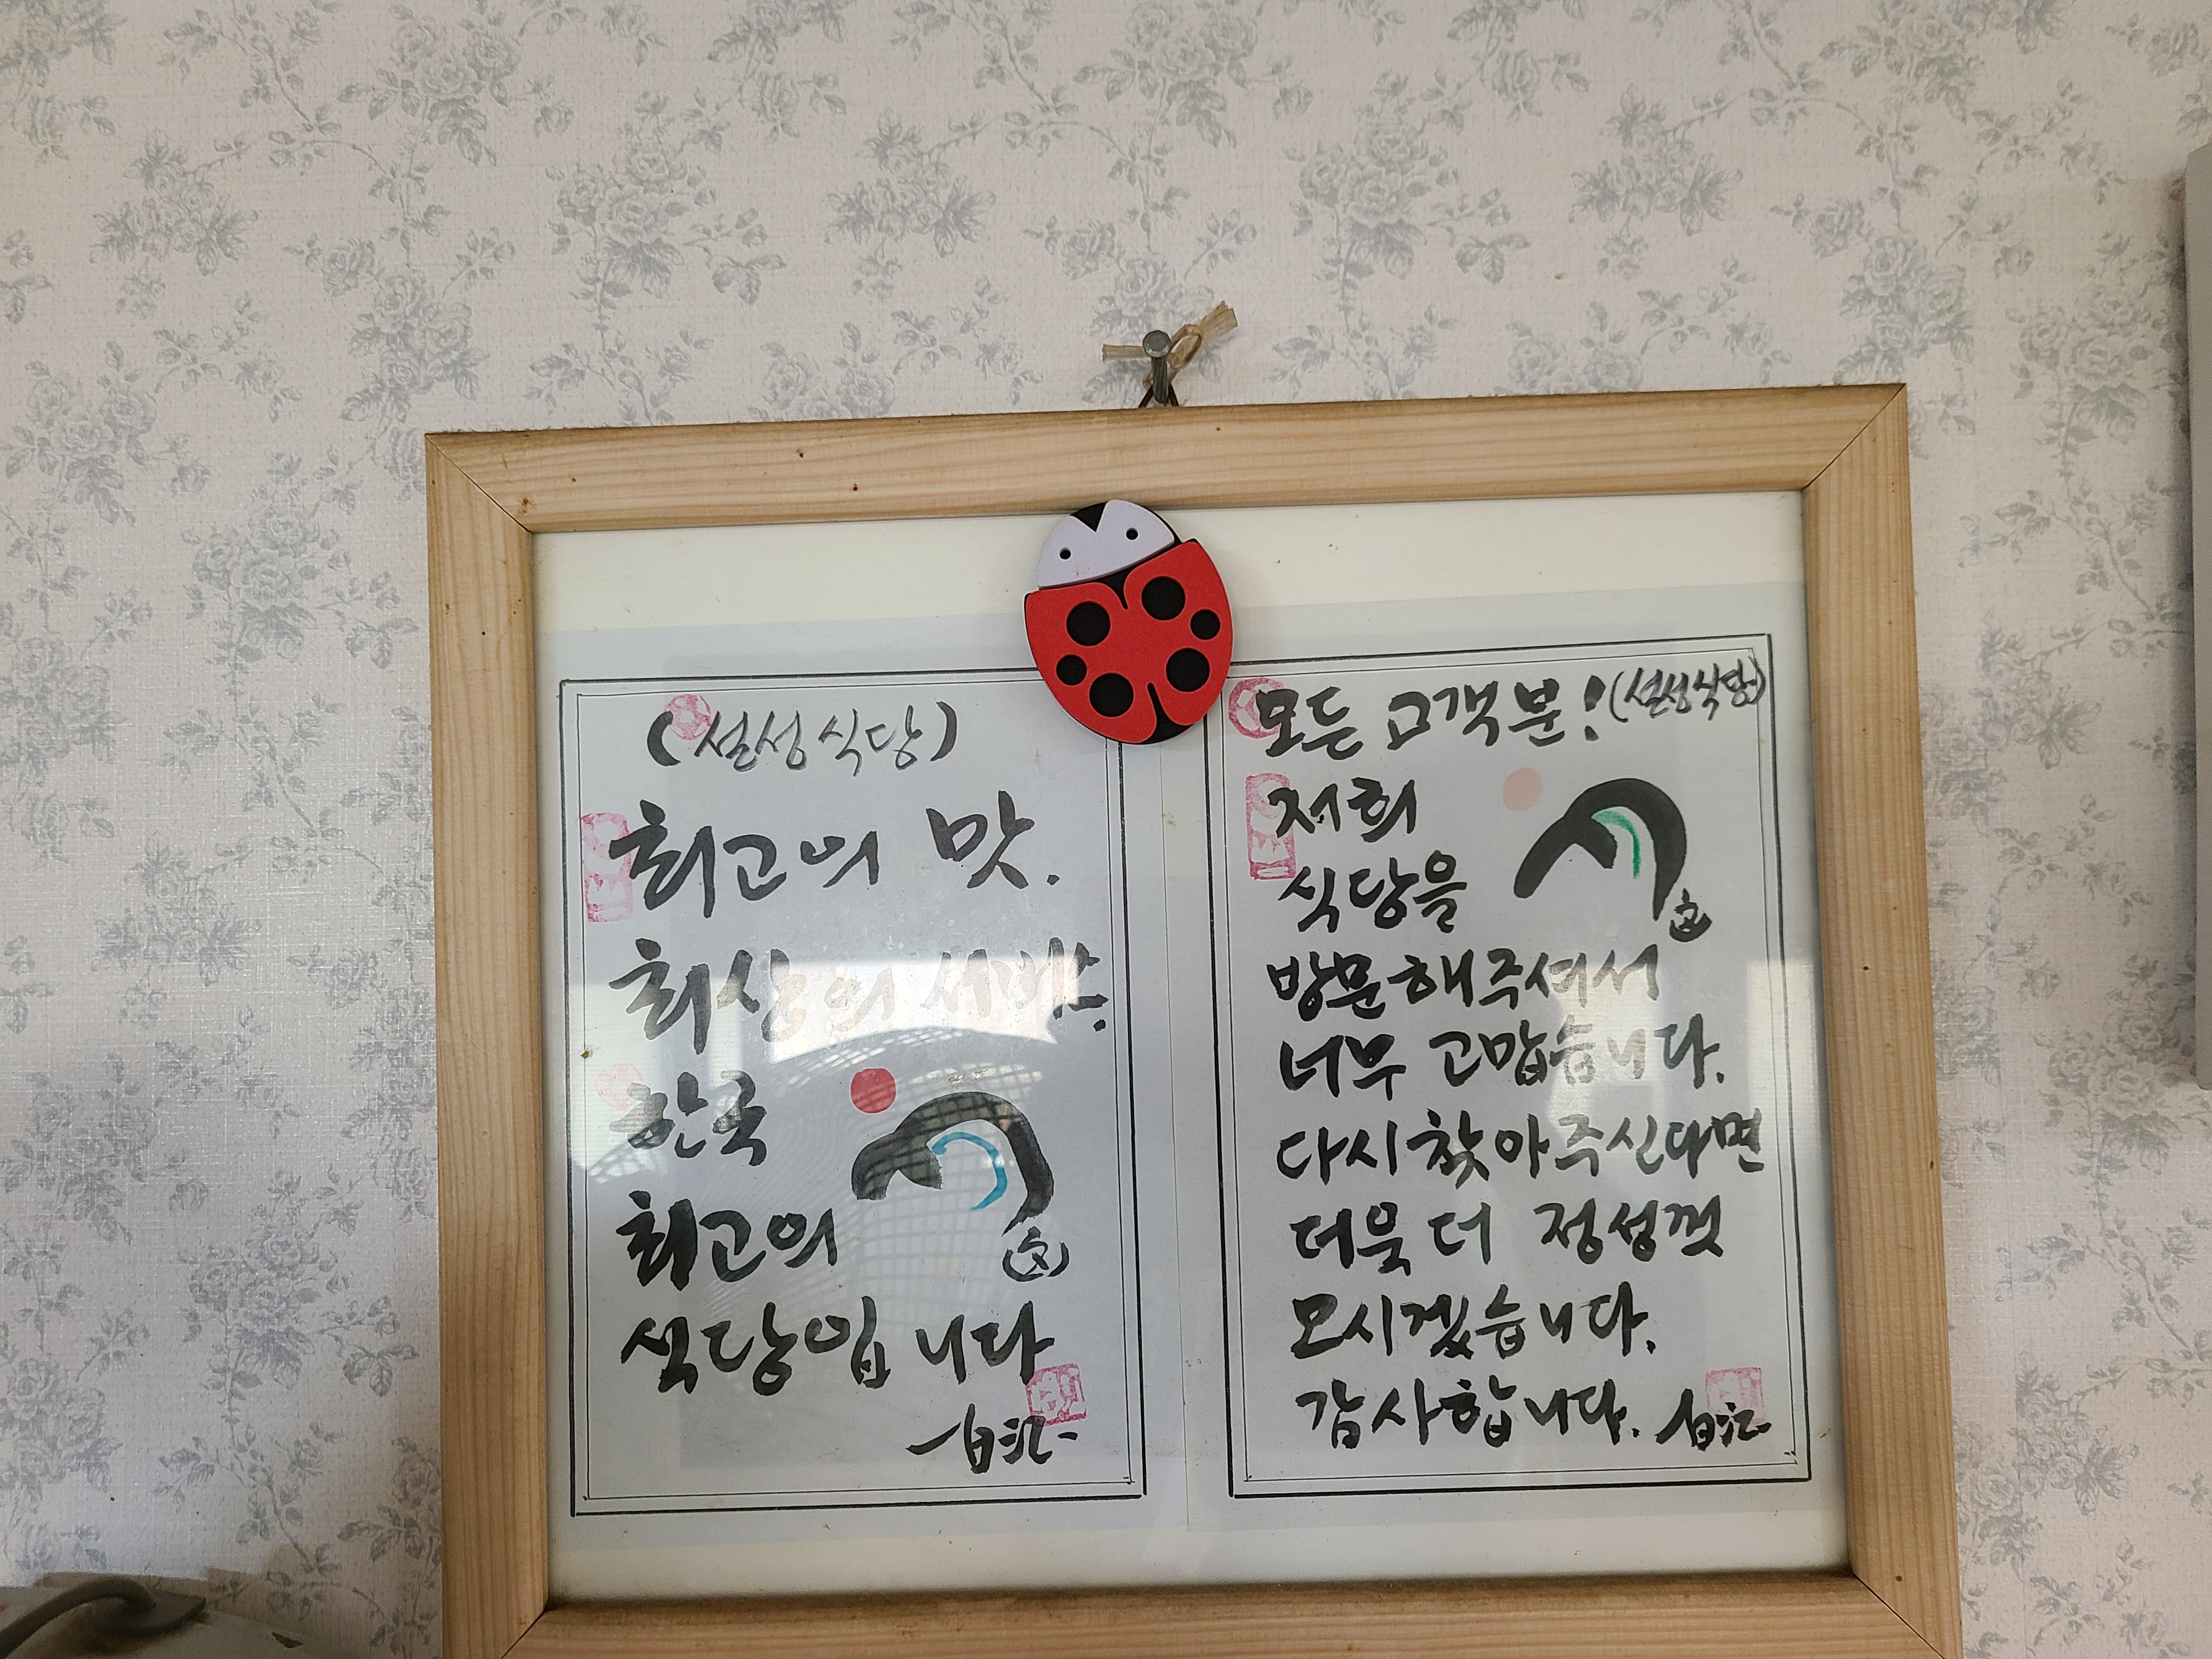 (설성식당)
최고의 맛.
최상의 서비스.
한국
최고의
식당입니다
(文)
모든 고객분! (설성식당)
저희
식당을
방문해주셔서
너무 고맙습니다.
다시 찾아주신다면
더욱 더 정성껏
모시겠습니다.
감사합니다.